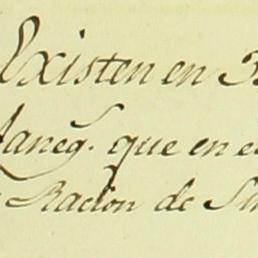 Existen en 3
faneg.s que en e
Racion de Su